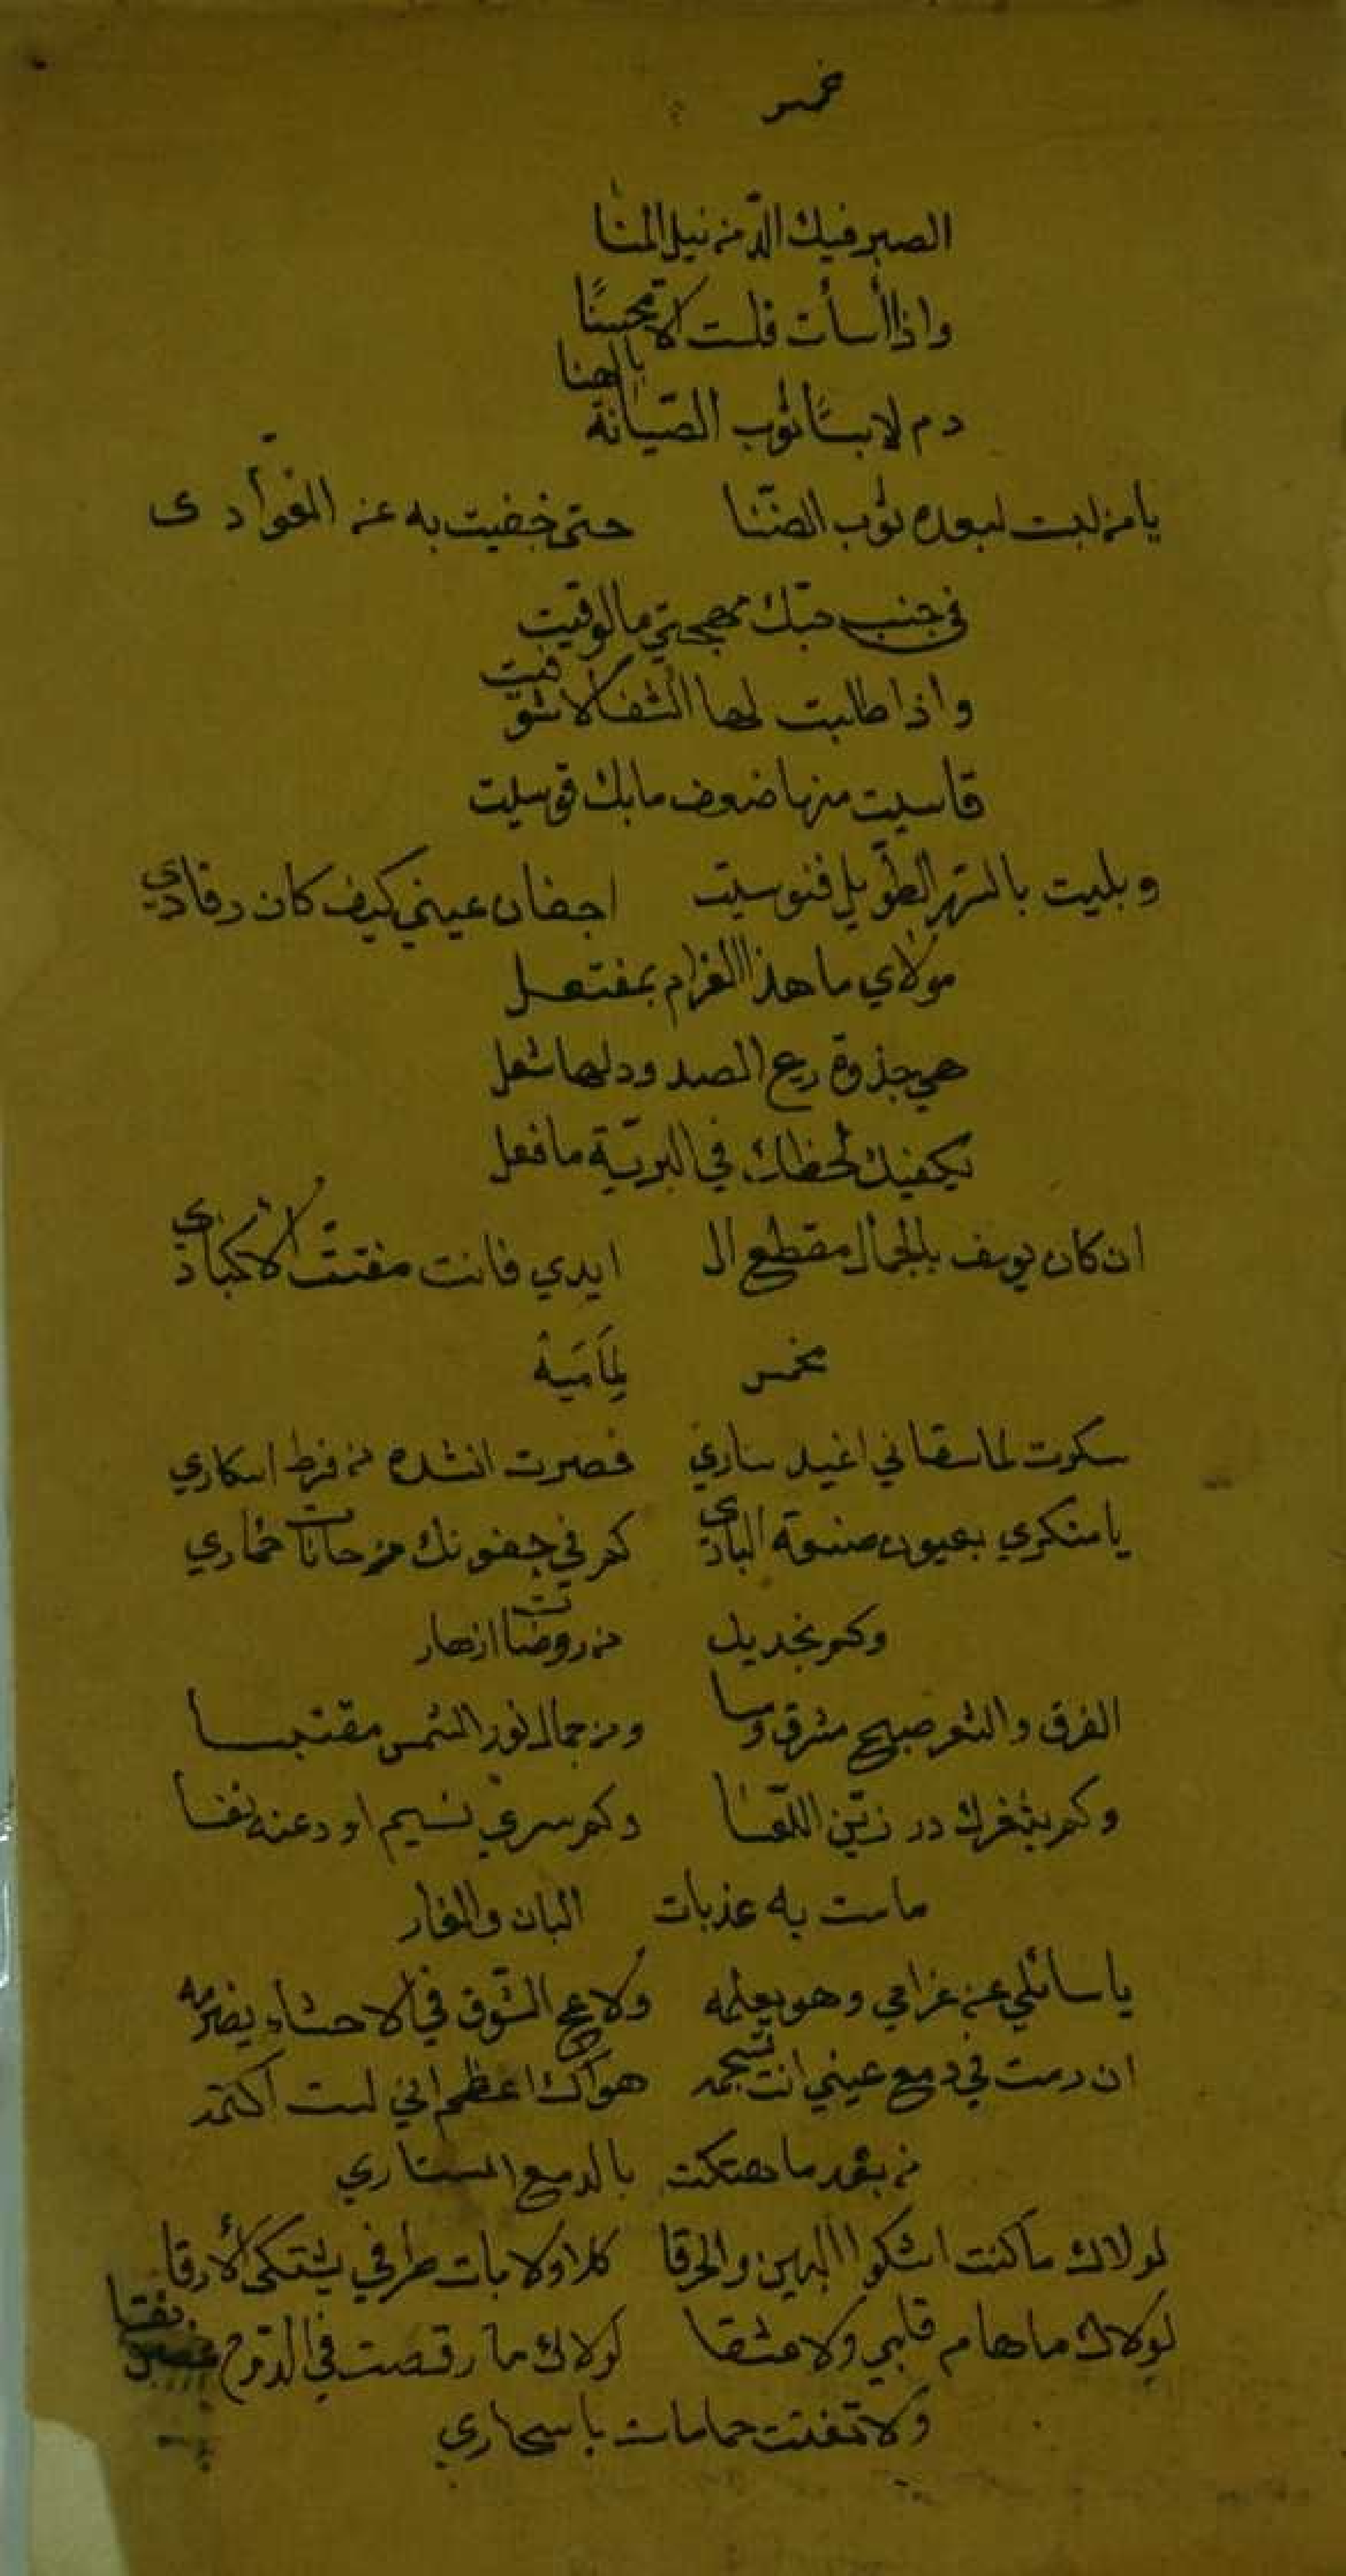 مخمس
الصبر فيك الذّ من نيل المنا
واذا أسأت فلست الا محسنًا
دم لابسًا ثوب الصّيانة بالهنا
يا من لبست لبعده ثوب الضّنا حتى خفيت به عن العوّادي
في جنب حبّك مهجتي ما لوقيت
واذا طلبت لها الشفا لا شوقيت
قاسيت منها ضعف ما بك قوسيت
وبليت بالسّهر الطّويل فنوسيت اجفان عيني كيف كان رقادي
مولاي ما هذا الغرام بمفتعل
هي جذوة ريح الصد ودلها شعل
يكفيك لحظك في البريّة ما فعل
ان كان يوسف بالجمال مقطع ال ايدي فانت مفتت الاكبادي
مخمس
سكرت لما سقاني اغيد ساري فصرت انشده من فرط اسكاري
يا مسكري بعيون صنعة الباري كم في جفونك من حانات خماري
وكم بخديك من روضات ازهار
الفرق والثغر صبح مشرق ومسا ومن جمالك نور الشمس مقتبسا
وكم بثغرك در زيّن اللّعسا وكم سرى نسيم اودعنه نفسا
ماست به عذبات البان والغار
يا سائلي عن غرامي وهو يعلمه ولاعج الشّوق في الاحشاء يضرمه
ان دمت في دمع عيني انت تسجمه هواك اعظم اني لست اكتمه
من بعد ما هتكت بالدمع استاري
لولاك ما كنت اشكوا البين والحرقا كلا ولا بات طرفي يشتكي الأرقا
لولاك ما هام قلبي ولا عشقا لولاك ما رقصت في الدّوح غصن نقا
ولا تغنت حمامات باسحاري